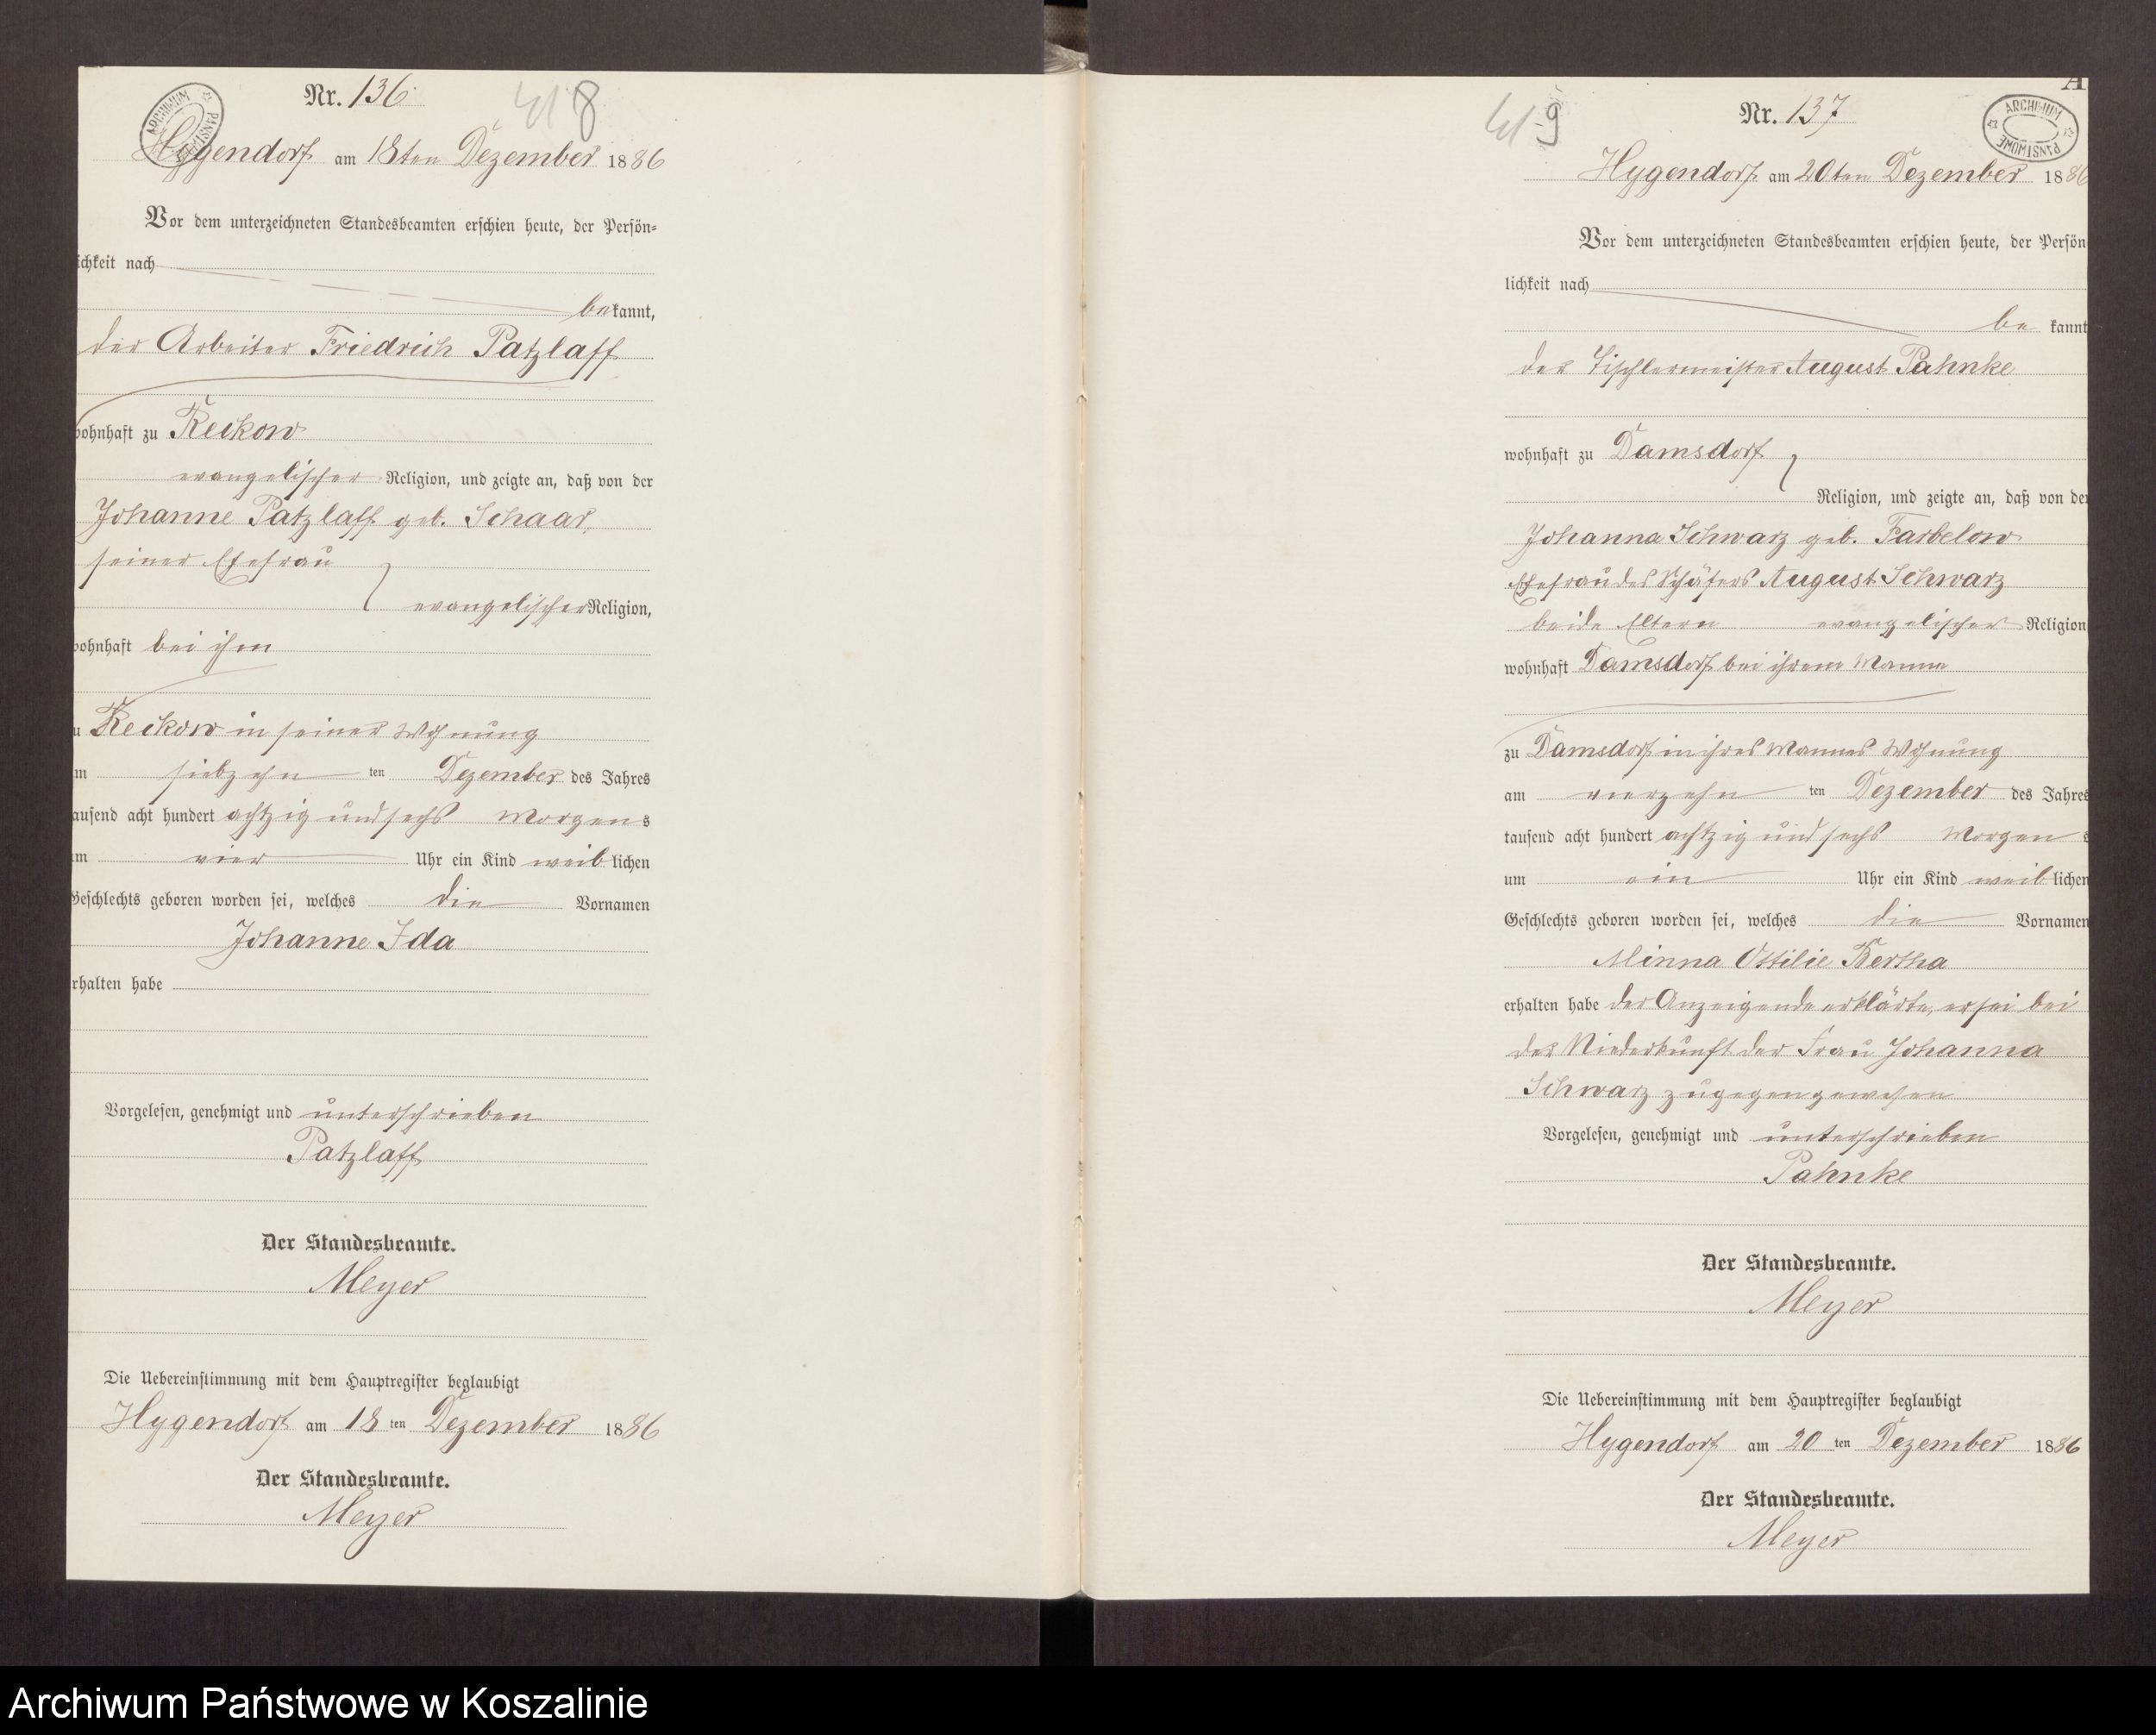 Nr. 136
418
ARCHIWUM PAŃSTWOWE
Hygendorf am 18ten Dezember 1886
Vor dem unterzeichneten Standesbeamten erschien heute, der Persön-
ichkeit nach
bekannt,
der Arbeiter Friedrich Patzlaff
wohnhaft zu Reckow
evangelischer Religion, und zeigte an, daß von der
Johanne Patzlaff geb. Schaar,
seiner Ehefrau
evangelischer Religion,
wohnhaft bei ihm
zu Reckow in seiner Wohnung
am siebzehn ten Dezember des Jahres
tausend acht hundert achtzig und sechs Morgens
um vier Uhr ein Kind weiblichen
Geschlechts geboren worden sei, welches die Vornamen
Johanne Ida
erhalten habe
Vorgelesen, genehmigt und unterschrieben
Patzlaff
Der Standesbeamte.
Meyer
Die Uebereinstimmung mit dem Hauptregister beglaubigt
Hygendorf am 18 ten Dezember 1886
Der Standesbeamte.
Meyer
A
419
Nr. 137
ARCHIWUM PAŃSTWOWE
Hygendorf am 20ten Dezember 1886
Vor dem unterzeichneten Standesbeamten erschien heute, der Persön
lichkeit nach
be kannt
der Tischlermeister August Pahnke
wohnhaft zu Damsdorf
Religion, und zeigte an, daß von der
Johanna Schwarz geb. Farbelow
Ehefrau des Schäfers August Schwarz
beide Eltern evangelischer Religion
wohnhaft Damsdorf bei ihrem Manne
zu Damsdorf in ihres Mannes Wohnung
am vierzehn ten Dezember des Jahres
tausend acht hundert achtzig und sechs Morgens
um ein Uhr ein Kind weiblichen
Geschlechts geboren worden sei, welches die Vornamen
Minna Ottilie Bertha
erhalten habe der Anzeigende erklärte, er sei bei
der Niederkunft der Frau Johanna
Schwarz zugegen gewesen
Vorgelesen, genehmigt und unterschrieben
Pahnke
Der Standesbeamte.
Meyer
Die Uebereinstimmung mit dem Hauptregister beglaubigt
Hygendorf am 20 ten Dezember 1886
Der Standesbeamte.
Meyer
Archiwum Państwowe w Koszalinie